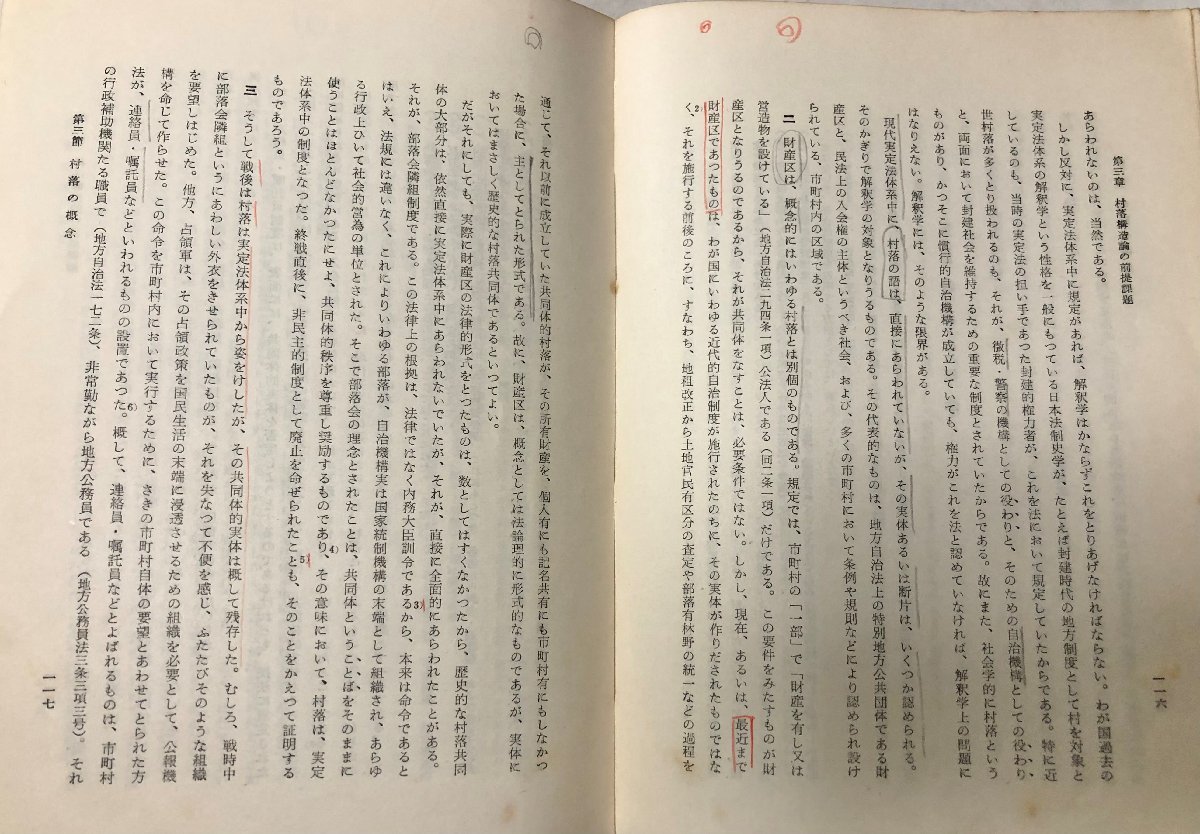 第三章　村落構造論の前提課題
一一六
あらわれないのは、当然である。
しかし反対に、実定法体系中に規定があれば、解釈学はかならずこれをとりあげなければならない。わが国過去の
実定法体系の解釈学という性格を一般にもつている日本法制史学が、たとえば封建時代の地方制度として村を対象と
しているのも、当時の実定法の担い手であつた封建的権力者が、これを法において規定していたからである。特に近
世村落が多くとり扱われるのも、それが、徴税・警察の機構としての役わりと、そのための自治機構としての役わり
と、両面において封建社会を維持するための重要な制度とされていたからである。故にまた、社会学的に村落という
ものがあり、かつそこに慣行的自治機構が成立していても、権力がこれを法と認めていなければ、解釈学上の問題に
はなりえない。解釈学には、そのような限界がある。
現代実定法体系中に、村落の語は、直接にあらわれていないが、その実体あるいは断片は、いくつか認められる。
そのかぎりで解釈学の対象となりうるものである。その代表的なものは、地方自治法上の特別地方公共団体である財
産区と、民法上の入会権の主体というべき社会、および、多くの市町村において条例や規則などにより認められ設け
られている、市町村内の区域である。
二　財産区は、概念的にはいわゆる村落とは別個のものである。規定では、市町村の「一部」で「財産を有し又は
営造物を設けている」（地方自治法二九四条一項）公法人である（同二条一項）だけである。この要件をみたすものが財
産区となりうるのであるから、それが共同体をなすことは、必要条件ではない。しかし、現在、あるいは、最近まで
財産区であつたものは、わが国にいわゆる近代的自治制度が施行されたのちに、その実体が作りだされたものではな
く、2）それを施行する前後のころに、すなわち、地租改正から土地官民有区分の査定や部落有林野の統一などの過程を
通じて、それ以前に成立していた共同体的村落が、その所有財産を、個人有にも記名共有にも市町村有にもしなかつ
た場合に、主としてとられた形式である。故に、財産区は、概念としては法論理的に形式的なものであるが、実体に
おいてはまさしく歴史的な村落共同体であるといつてよい。
だがそれにしても、実際に財産区の法律的形式をとつたものは、数としてはすくなかつたから、歴史的な村落共同
体の大部分は、依然直接に実定法体系中にあらわれないでいたが、それが、直接に全面的にあらわれたことがある。
それが、部落会隣組制度である。この法律上の根拠は、法律ではなく内務大臣訓令であるから、3）本来は命令であると
はいえ、法規には違いなく、これによりいわゆる部落が、自治機構実は国家統制機構の末端として組織され、あらゆ
る行政上ひいて社会的営為の単位とされた。そこで部落会の理念とされたことは、共同体ということばをそのままに
使うことはほとんどなかつたにせよ、共同体的秩序を尊重し奨励するものであり、4）その意味において、村落は、実定
法体系中の制度となつた。終戦直後に、非民主的制度として廃止を命ぜられたことも、5）そのことをかえつて証明する
ものであろう。
三　そうして戦後は村落は実定法体系中から姿をけしたが、その共同体的実体は概して残存した。むしろ、戦時中
に部落会隣組というにあわしい外衣をきせられていたものが、それを失なつて不便を感じ、ふたたびそのような組織
を要望しはじめた。他方、占領軍は、その占領政策を国民生活の末端に浸透させるための組織を必要として、公報機
構を命じて作らせた。この命令を市町村内において実行するために、さきの市町村自体の要望とあわせてとられた方
法が、連絡員・嘱託員などといわれるものの設置であつた。6）概して、連絡員・嘱託員などとよばれるものは、市町村
の行政補助機関たる職員で（地方自治法一七二条）、非常勤ながら地方公務員である（地方公務員法三条三項三号）。それ
第三節　村落の概念
一一七